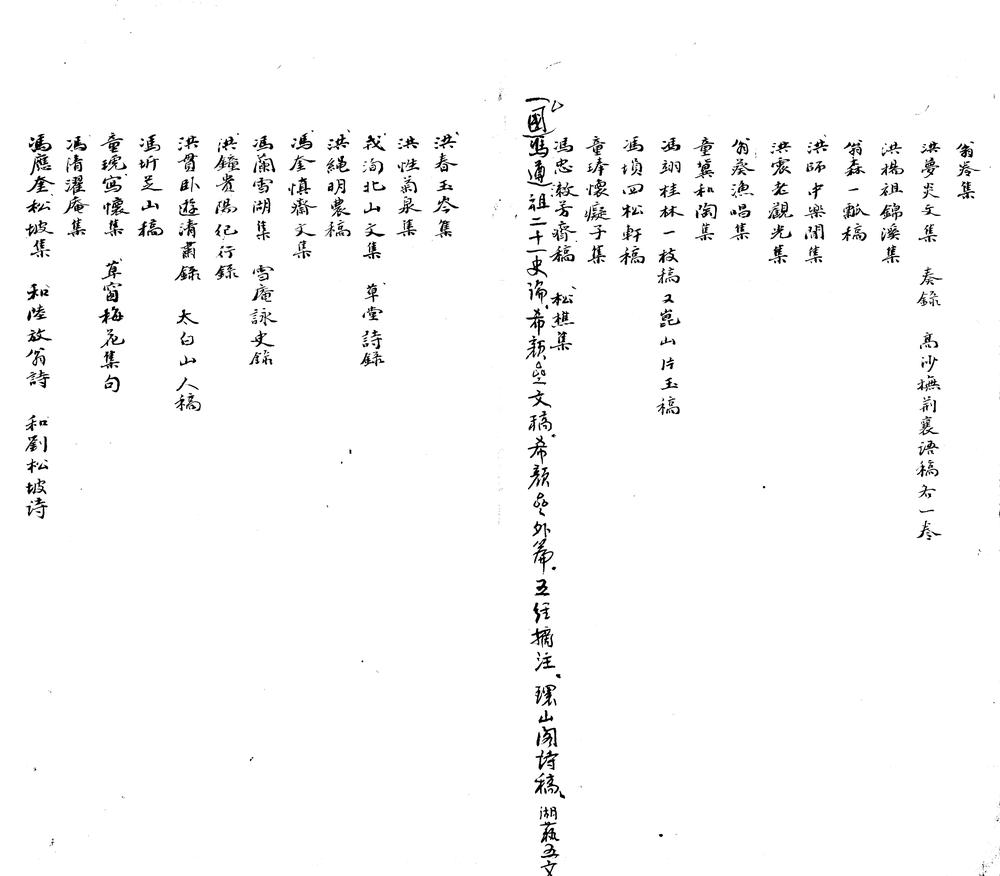 翁卷集
洪夢炎文集　奏錄　高沙撫荊襄語稿各一卷
洪揚祖錦溪集
翁森一瓢稿
洪師中樂閒集
洪震老觀光集
翁葵漁唱集
童冀和陶集
馮翊桂林一枝稿又崑山片玉稿
馮塤四松軒稿
童琫懷癡子集
馮忠教芳齋稿　松樵集
國馮通祖二十一史論、希顏文稿、希顏外篇、五經摘注、環山閣詩稿、湖蓺五文
洪春玉岑集
洪性菊泉集
洵北山文集　草堂詩錄
洪繩明農稿
馮奎慎齋文集
馮蘭雪湖集　雪庵詠史錄
洪鐘貴陽紀行錄
洪貫臥遊清肅錄　太白山人稿
馮圻芝山稿
童琥寓懷集　草窗梅花集句
馮清濯庵集
馮應奎松坡集　和陸放翁詩　和劉松坡詩